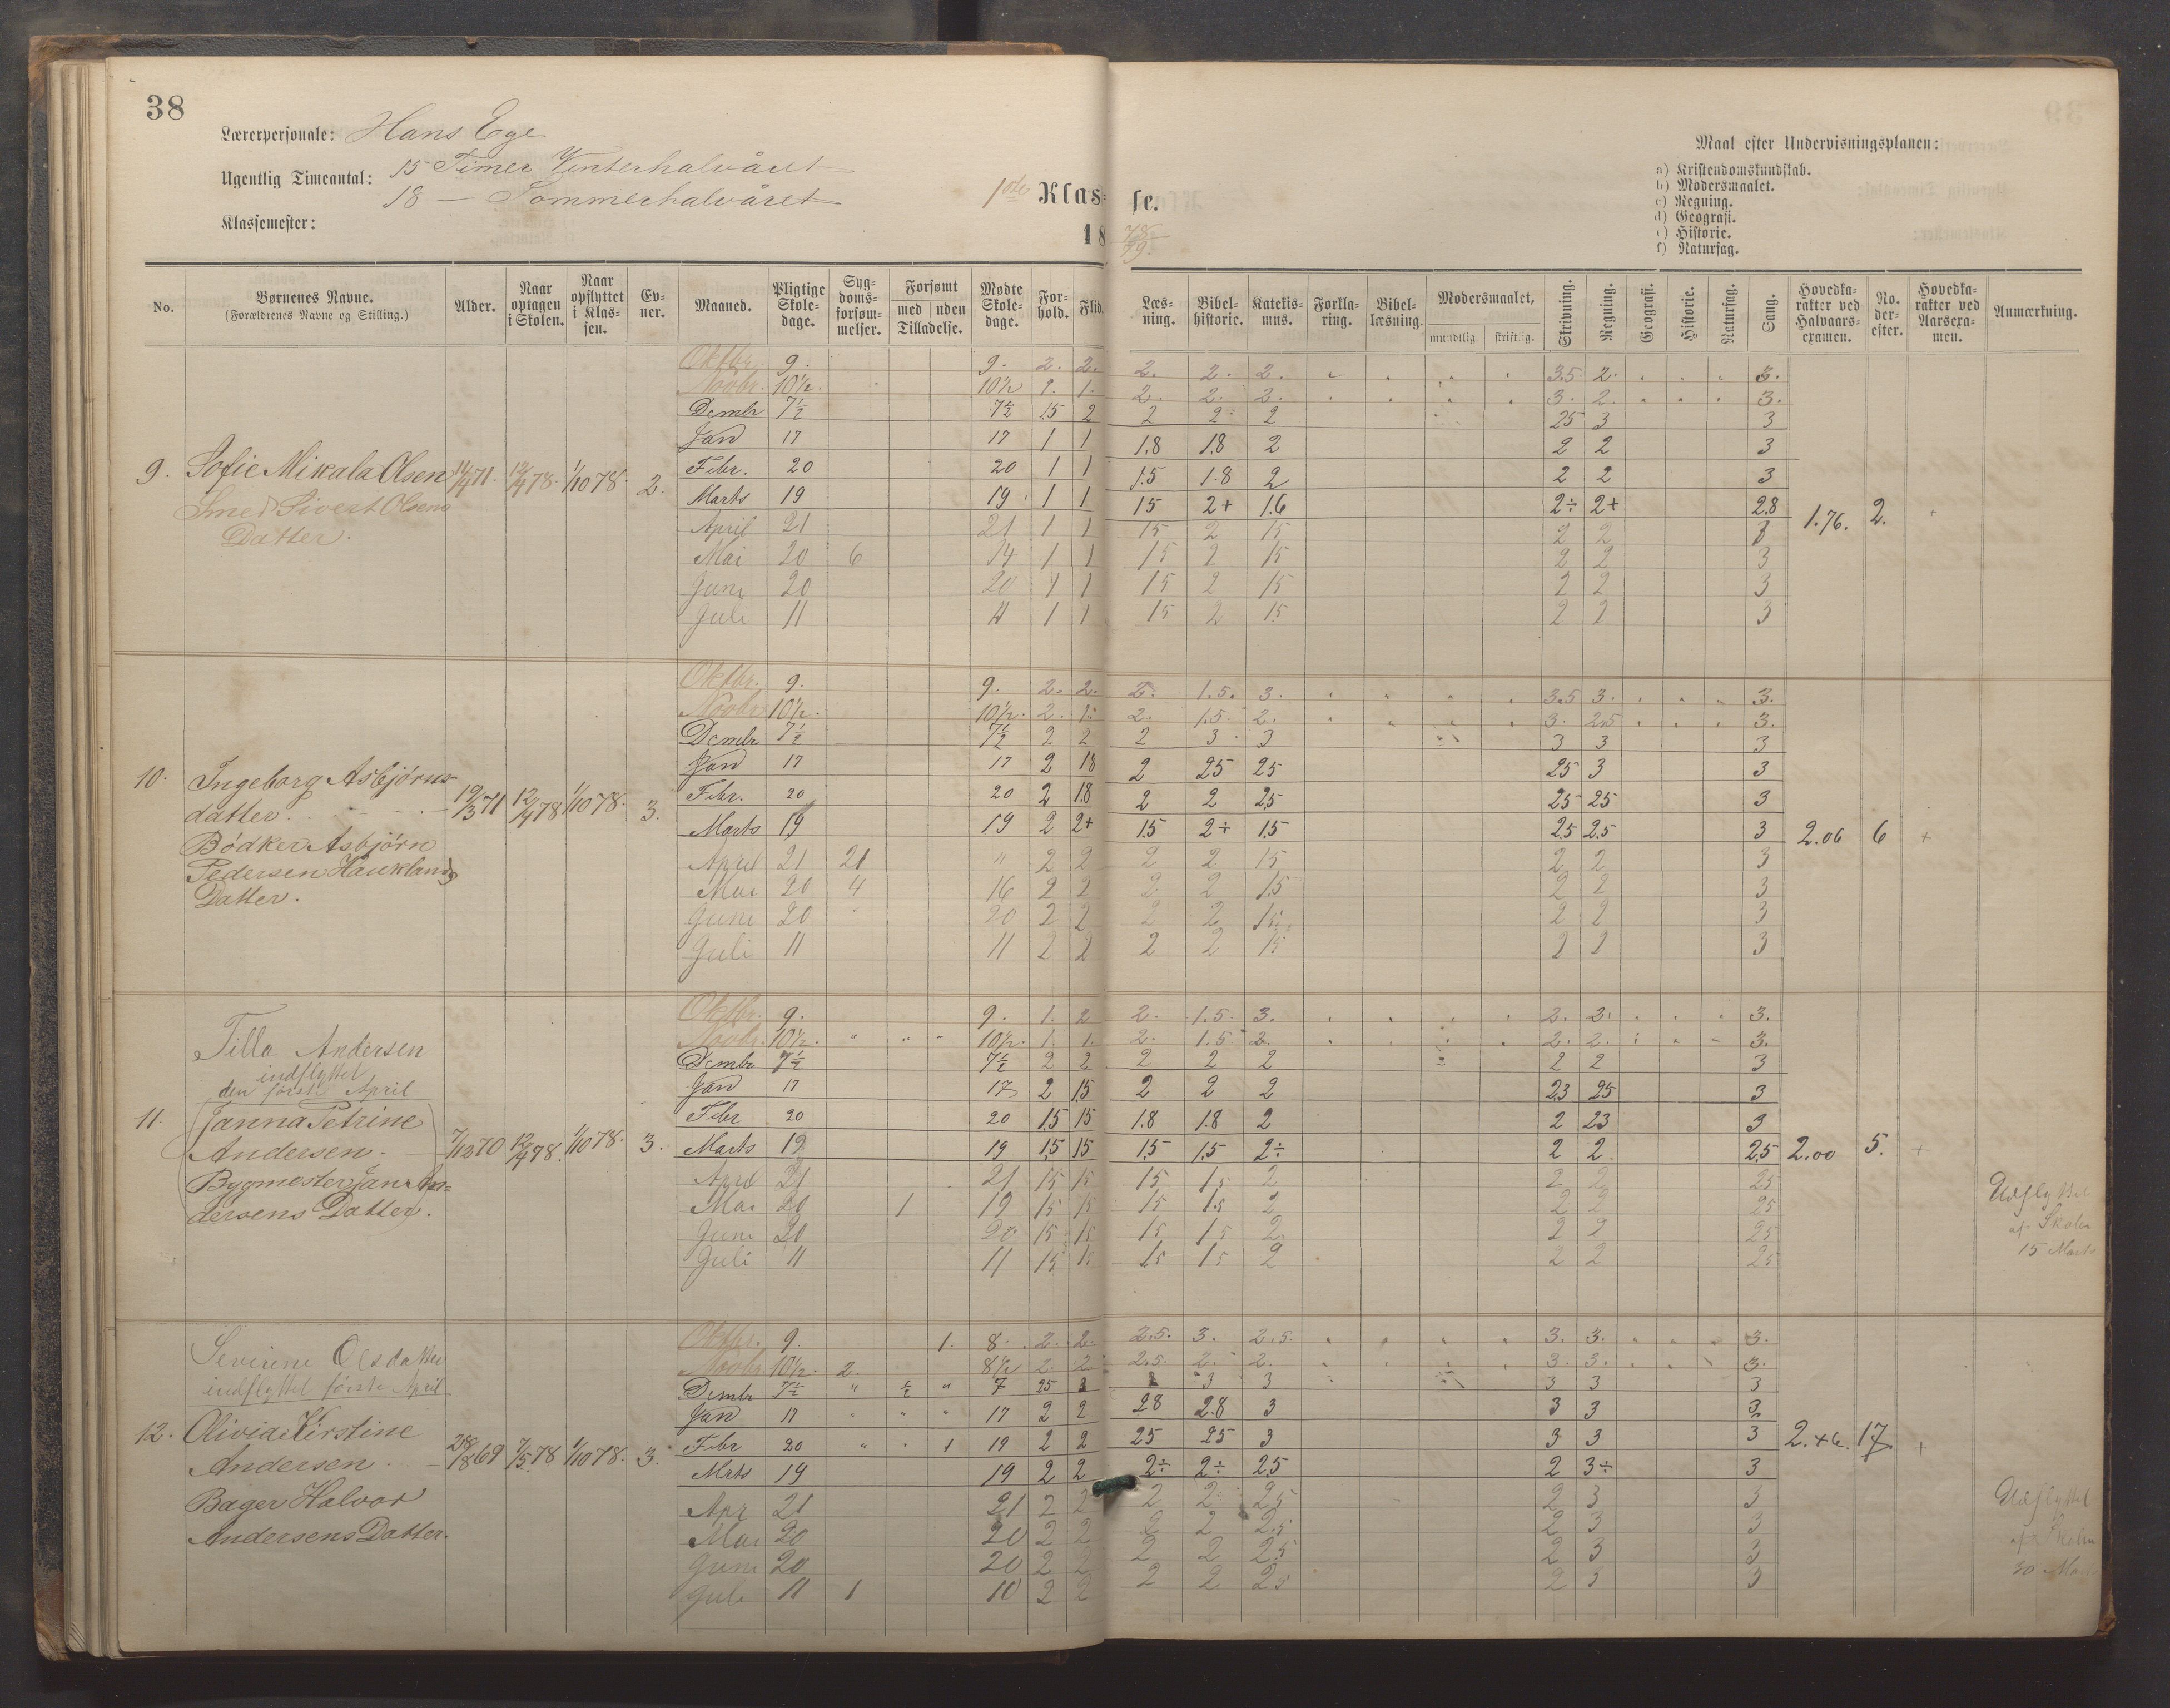 38
Lærerpersonale: Hans Ege
Ugentlig Timeantal: 15 Timer Vinterhalvåret
18 — Sommerhalvåret
Klassemester:
1ste Klasse.
18 78-79.
Maal efter Undervisningsplanen:
a) Kristendomskundskab.
b) Modersmaalet.
c) Regning.
d) Geografi.
e) Historie.
f) Naturfag.
No. | Børnenes Navne. (Forældrenes Navne og Stilling.) | Alder. | Naar optagen i Skolen. | Naar opflyttet i Klassen. | Evner. | Maaned. | Pligtige Skoledage. | Sygdomsforsømmelser. | Forsømt med uden Tilladelse. | Mødte Skoledage. | Forhold. | Flid. | Læsning. | Bibelhistorie. | Katekismus. | Forklaring. | Bibellæsning. | Modersmaalet, mundtlig. skriftlig. | Skrivning. | Regning. | Geografi. | Historie. | Naturfag. | Sang. | Hovedkarakter ved Halvaarsexamen. | No. derefter. | Hovedkarakter ved Aarsexamen. | Anmærkning.
9. Sofie Mikala Olsen
Smed Sivert Olsens
Datter.
12/4 78. 1/10 78. 2.
Oktbr. 9. 9. 2. 2. 2. 2. 2. 3.5 2. 3.
Novbr. 10½. 10½ 1. 1. 2. 2. 2. 3. 2. 3.
Dcmbr 7½ 7½ 15 2 2 2 2 25 3 3
Jan 17 17 1 1 1.8 1.8 2 2 2 3
Febr. 20 20 1 1 1.5 1.8 2 2 2 3
Marts 19 19 1 1 15 2+ 1.6 2÷ 2+ 2.8
1.76. 2.
April 21 21 1 1 15 2 15 2 2 3
Mai 20 6 14 1 1 15 2 15 2 2 3
Juni 20 20 1 1 15 2 15 2 2 3
Juli 11 11 1 1 15 2 15 2 2 3
10. Ingeborg Asbjørnsdatter.
Bødker Asbjørn
Pedersen Hauklands
Datter.
19/3 71 12/4 78 1/10 78. 3.
Oktbr. 9. 9. 2. 2. 2. 1.5. 3. 3.5 3. 3.
Novbr 10½. 10½. 2. 1. 2. 1.5. 2. 3. 2.5 3.
Dcmbr 7½ 7½ 2 2 2 3 3 3 3 3
Jan 17 17 2 18 2 25 25 25 3 3
Febr. 20 20 2 1.8 2 2 2.5 25 25 3
Marts 19 19 2 2+ 15 2÷ 1.5 2.5 2.5 3
2.06 6 +
April 21 21 " 2 2 2 2 15 2 2 3
Mai 20 4 16 2 2 2 2 1.5 2 2 3
Juni 20 20 2 2 2 2 15 2 2 3
Juli 11 11 2 2 2 2 15 2 2 3
Tilla Andersen
indflyttet
den første April
11. (Janna Petrine
Andersen.
Bygmester Jan Andersens Datter.
7/12 70 12/4 78. 1/10 78. 3.
Oktbr. 9. 9. 1. 2 2. 1.5. 3. 2. 2. 3.
Novbr. 10½. 10½. 1. 1. 2. 1.5 2. 2. 2. 3.
Dcmbr 7½ 7½ 2 2 2 2 2 2 2 3
Jan 17 17 2 15 2 2 2 23 25 3
Febr 20 20 15 15 1.8 1.8 2 2 23 3
Marts 19 19 15 15 1.5 1.5 2÷ 2 2 2.5
2.00 5. +
April 21 21 15 15 15 15 2 2 2 25
Mai 20 1 19 15 15 15 15 2 2 2 25
Juni 20 20 15 15 15 15 2 2 2 25
Juli 11 11 15 15 15 15 2 2 2 25
Udflyttet
af Skolen
15 Marts
Severine Olsdatter
indflyttet første April
12. Olivia Kirstine
Andersen.
Bager Halvor
Andersens Datter.
28/8 69 7/5 78 1/10 78. 3.
Oktbr. 9. 1. 8. 2. 2. 2.5. 3. 2.5. 3. 3. 3.
Novbr 10½. 2. 8½ 2. 2 2.5. 2. 2. 3. 3. 3.
Dcmbr 7½ " ½ " 7 25 3 3 3 3 3 3
Jan 17 17 2 2 28 2.8 3 3 3 3
Febr 20 1 19 2 2 25 25 3 3 3 3
Mrts 19 19 2 2 2÷ 2÷ 2.5 2 3÷ 3
17 +
Apr 21 21 2 2 2 2 2.5 2 3 3
Mai 20 20 2 2 2 2 2.5 2 3 3
Juni 20 20 2 2 2 2 2.5 2 3 3
Juli 11 1 10 2 2 2 2 25 2 3 3
Udflyttet
af Skolen
30